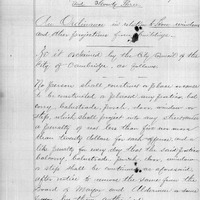 and Seventy Three.
An Ordinance in relation to bow windows
and other projections from buildings.
Be it ordained by the City Council of the
City of Cambridge, as follows.
No person shall construct or place, or cause
to be constructed or placed any portico,
balcony, balustrade, porch, door, window or
step, which shall project into any street
a penalty of not less than five nor more
than twenty dollars for each offence, and a
like penalty for every day that the said portico
balcony, balustrade, porch, door, window
or step shall be continued as aforesaid,
after notice to remove the same from the
Board of Mayor and Aldermen